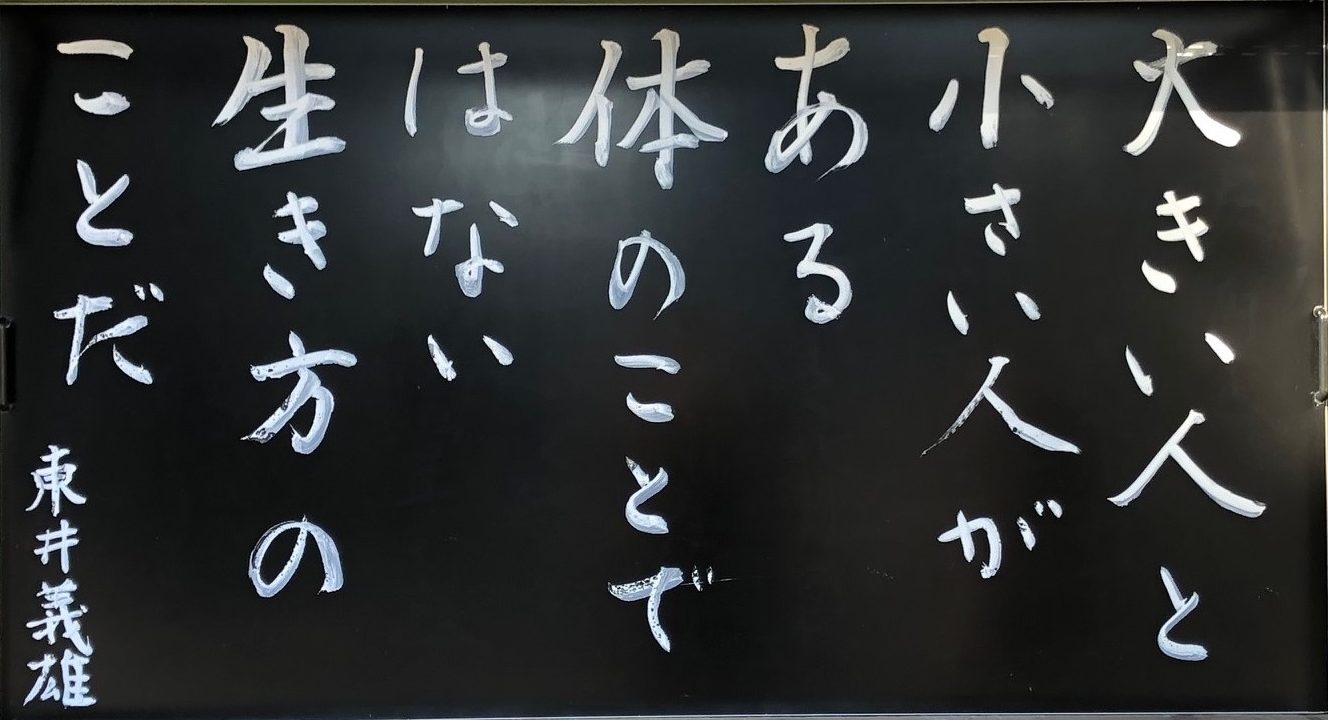 大きい人と
小さい人が
ある
体のことで
はない
生き方の
ことだ
東井義雄